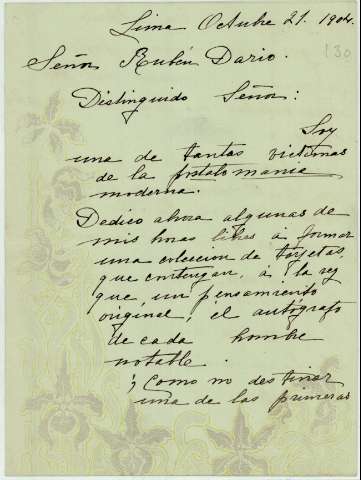 Lima Octubre 21. 1904.
130
Señor Rubén Dario.
Distinguido Señor:
Soy
una de tantas victimas
de la postalo mania
moderna.
Dedico ahora algunas de
mis horas libres á formar
una coleccion de tarjetas,
que contengan, á la vez
que, un pensamiento
original, el autógrafo
de cada hombre
notable.
¿Como no destinar
una de las primeras